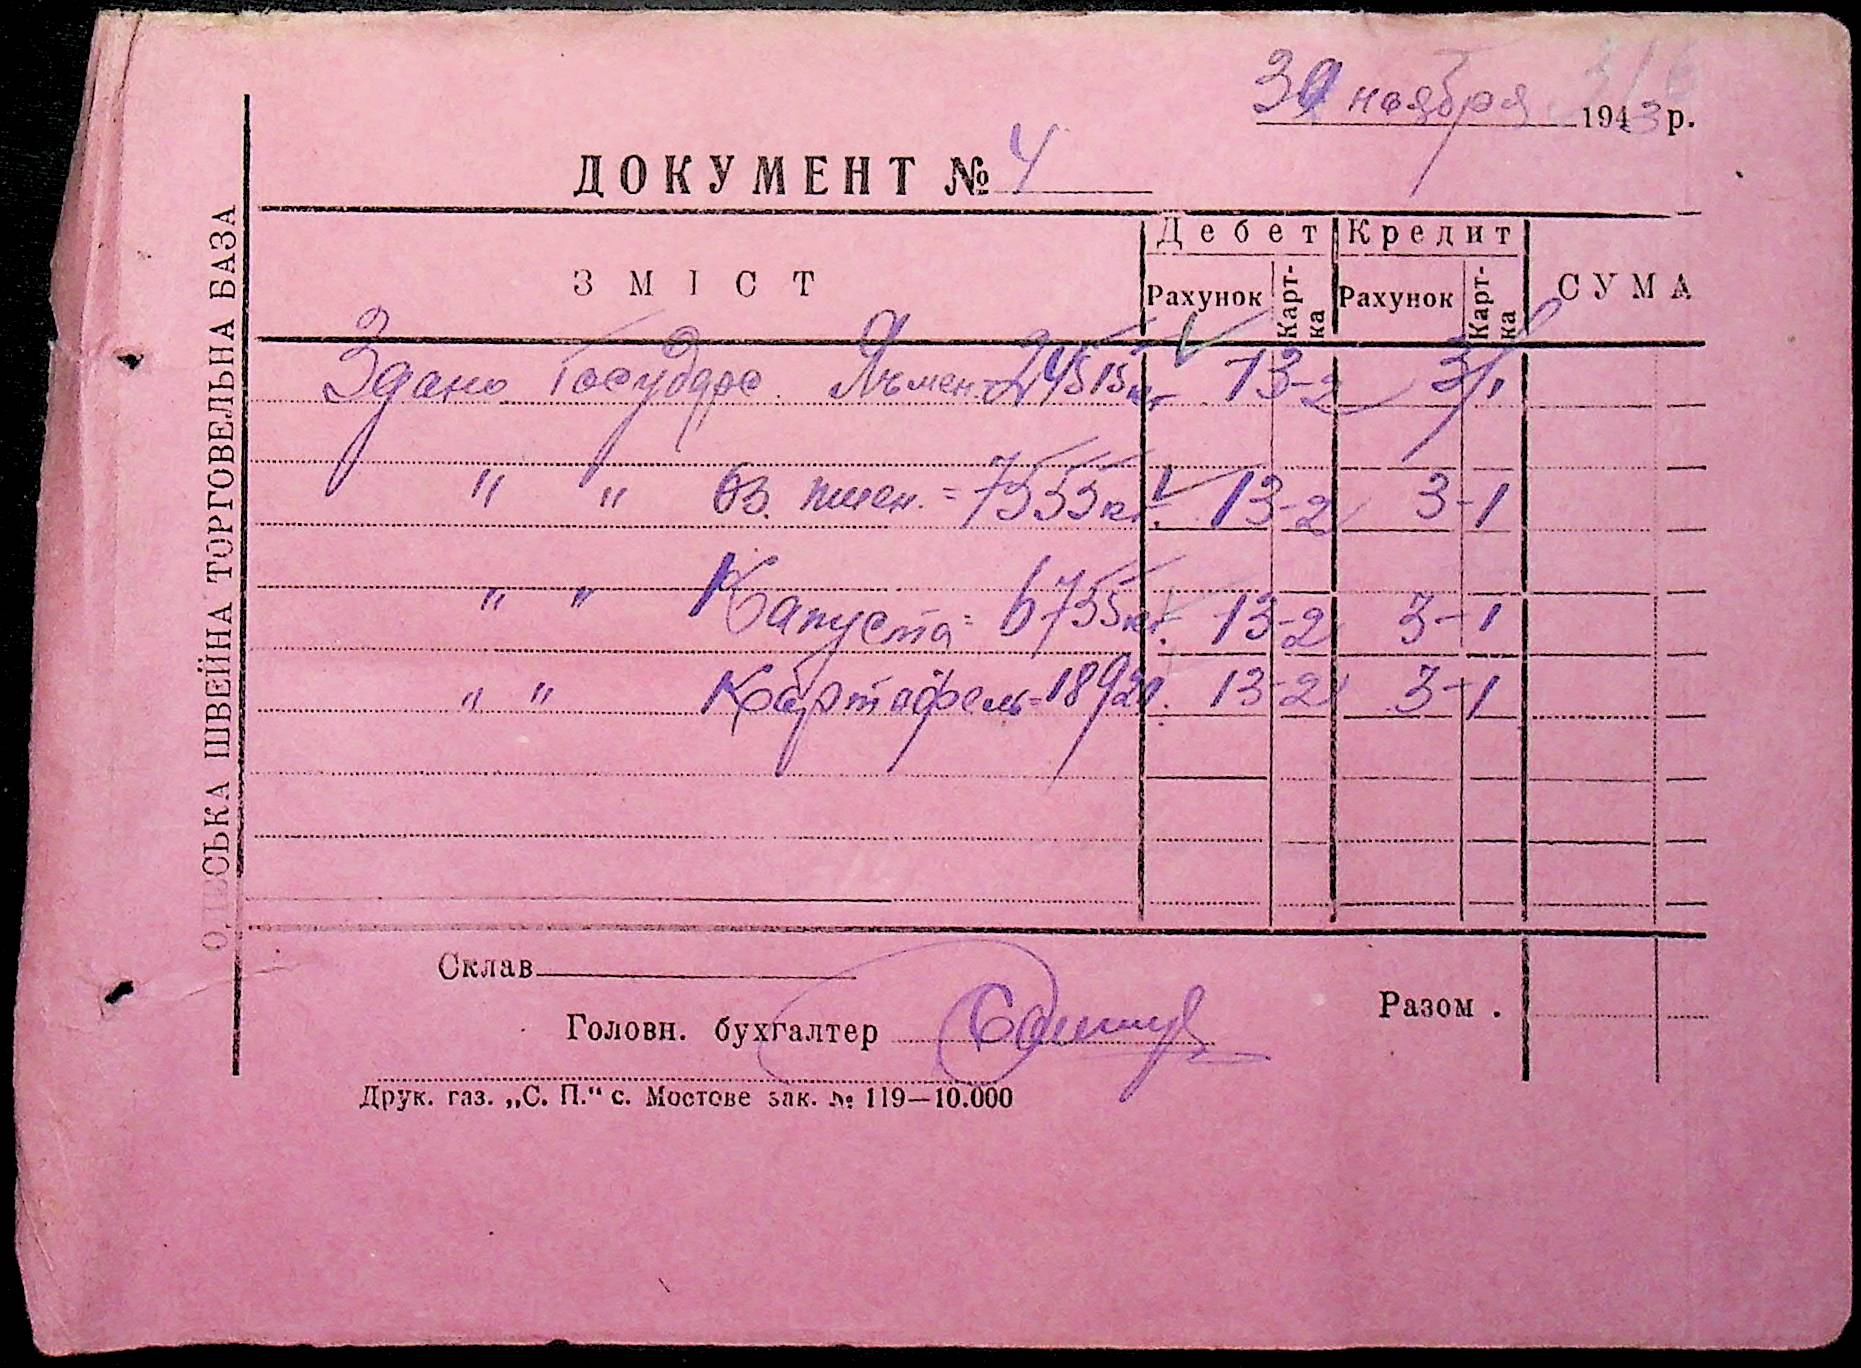 316
30 ноября 1943 р.
ДОКУМЕНТ № 4
ОДЕСЬКА ШВЕЙНА ТОРГОВЕЛЬНА БАЗА
ЗМІСТ Дебет Кредит СУМА
Рахунок Карт-ка Рахунок Карт-ка
Здано Государс. Ячмен 24515 кг 13-2 3/1
" " оз. пшен. = 7555 кг. 13-2 3-1
" " Капуста = 6755 кг. 13-2 3-1
" " Картофель = 18921. 13-2 3-1
Склав
Головн. бухгалтер
Разом .
Друк. газ. „С. П.“ с. Мостове зак. № 119—10.000